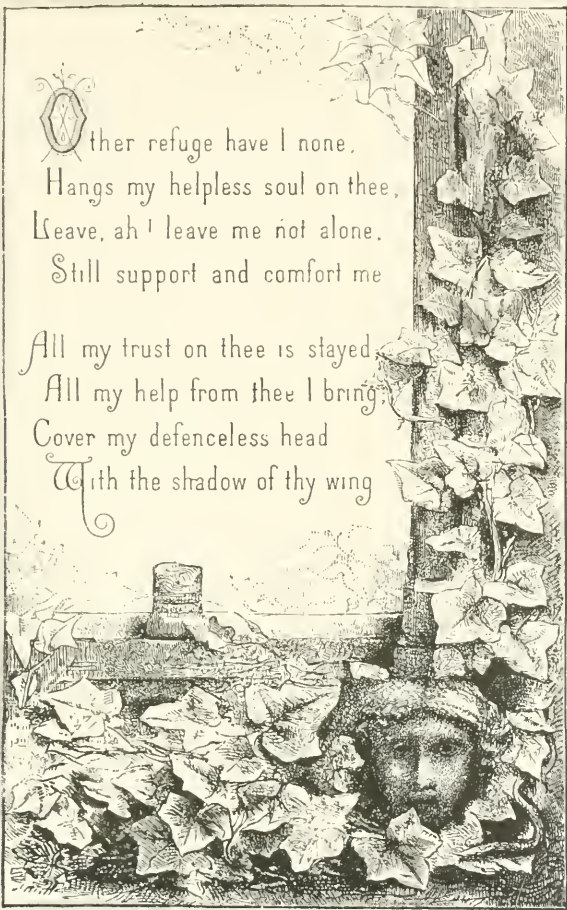 Other refuge have I none,
Hangs my helpless soul on thee,
Leave, ah! leave me not alone,
Still support and comfort me
All my trust on thee is stayed,
All my help from thee I bring;
Cover my defenceless head
With the shadow of thy wing